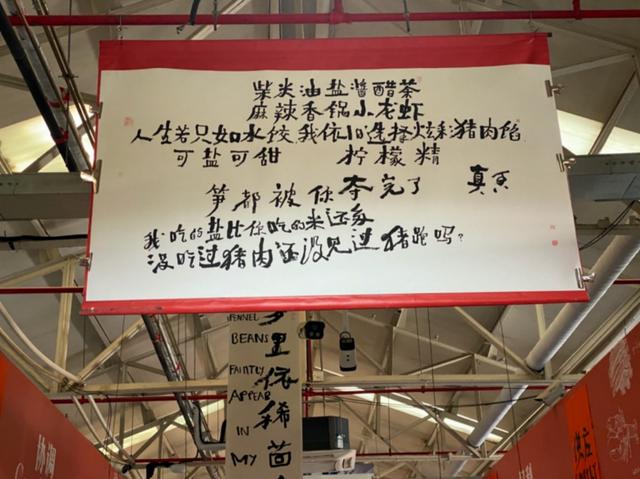 柴米油盐醬醋茶
麻辣香锅小龙虾
人生若只如水饺,我依旧选择炫彩猪肉馅
可盐可甜 柠檬精
笋都被你夺完了 真香
我吃的盐比你吃的米还多
没吃过猪肉还没见过猪跑吗?
里依稀茴
FENNEL
BEANS
FAINTLY
APPEAR
IN
MY
协调
供应